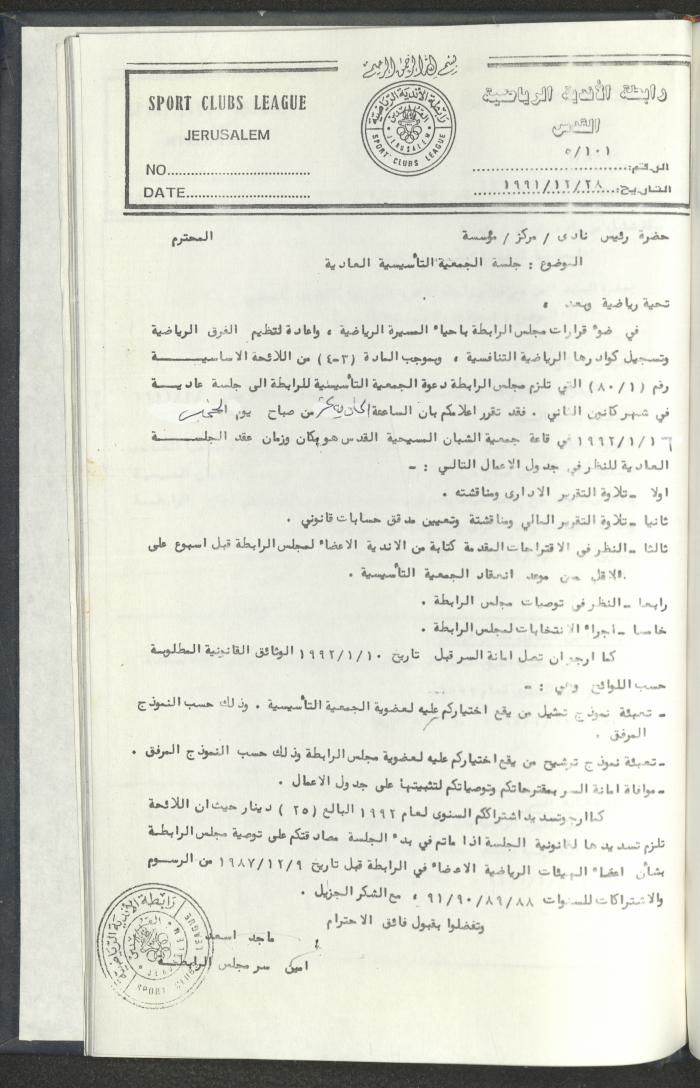 بسم الله الرحمن الرحيم
SPORT CLUBS LEAGUE
JERUSALEM
NO.
DATE
رابطة الأندية الرياضية
القدس
SPORT CLUBS LEAGUE
JERUSALEM
رابطة الأندية الرياضية
القدس
الرقم: ٥/١٠١
التاريخ: ١٩٩١/١٢/٢٨
حضرة رئيس نادى / مركز / مؤسسة المحترم
الموضوع : جلسة الجمعية التأسيسية العادية
تحية رياضية وبعد ،
في ضوء قرارات مجلس الرابطة باحياء المسيرة الرياضية ، واعادة لتنظيم الفرق الرياضية
وتسجيل كوادرها الرياضية التنافسية ، وبموجب المادة (٣-٤) من اللائحة الاساسيـــة
رقم (٨٠/١) التي تلزم مجلس الرابطة دعوة الجمعية التأسيسية للرابطة الى جلسة عاديـــة
في شهر كانون الثاني . فقد تقرر اعلامكم بان الساعة الحادية عشر من صباح يوم الخميس
١٩٩٢/١/١٦ في قاعة جمعية الشبان المسيحية القدس هو مكان وزمان عقد الجلســـة
العادية للنظر في جدول الاعمال التالي : -
اولا - تلاوة التقرير الادارى ومناقشته .
ثانيا - تلاوة التقرير المالي ومناقشتة وتعيين مدقق حسابات قانوني .
ثالثا - النظر في الاقتراحات المقدمة كتابة من الاندية الاعضاء لمجلس الرابطة قبل اسبوع على
الاقل من موعد انعقاد الجمعية التأسيسية .
رابعا - النظر في توصيات مجلس الرابطة .
خامسا - اجراء الانتخابات لمجلس الرابطة .
كما ارجو ان تصل امانة السر قبل تاريخ ١٩٩٢/١/١٠ الوثائق القانونية المطلوبة
حسب اللوائح وهي : -
- تعبئة نموذج تمثيل من يقع اختياركم عليه لعضوية الجمعية التأسيسية . وذلك حسب النموذج
المرفق .
- تعبئة نموذج ترشيح من يقع اختياركم عليه لعضوية مجلس الرابطة وذلك حسب النموذج المرفق .
- موافاة امانة السر بمقترحاتكم وتوصياتكم لتثبيتها على جدول الاعمال .
كما ارجو تسديد اشتراككم السنوى لعام ١٩٩٢ البالغ (٢٥) دينار حيث ان اللائحة
تلزم تسديدها لقانونية الجلسة اذا ماتم في بدء الجلسة مصادقتكم على توصية مجلس الرابطـة
بشأن اعفاء الهيئات الرياضية الاعضاء في الرابطة قبل تاريخ ١٩٨٧/١٢/٩ من الرسوم
والاشتراكات للسنوات ٩١/٩٠/٨٩/٨٨ ، مع الشكر الجزيل .
وتفضلوا بقبول فائق الاحترام
ماجد اسعد
امين سر مجلس الرابطـــة
رابطة الأندية الرياضية
القدس
JERUSALEM
SPORT CLUBS LEAGUE